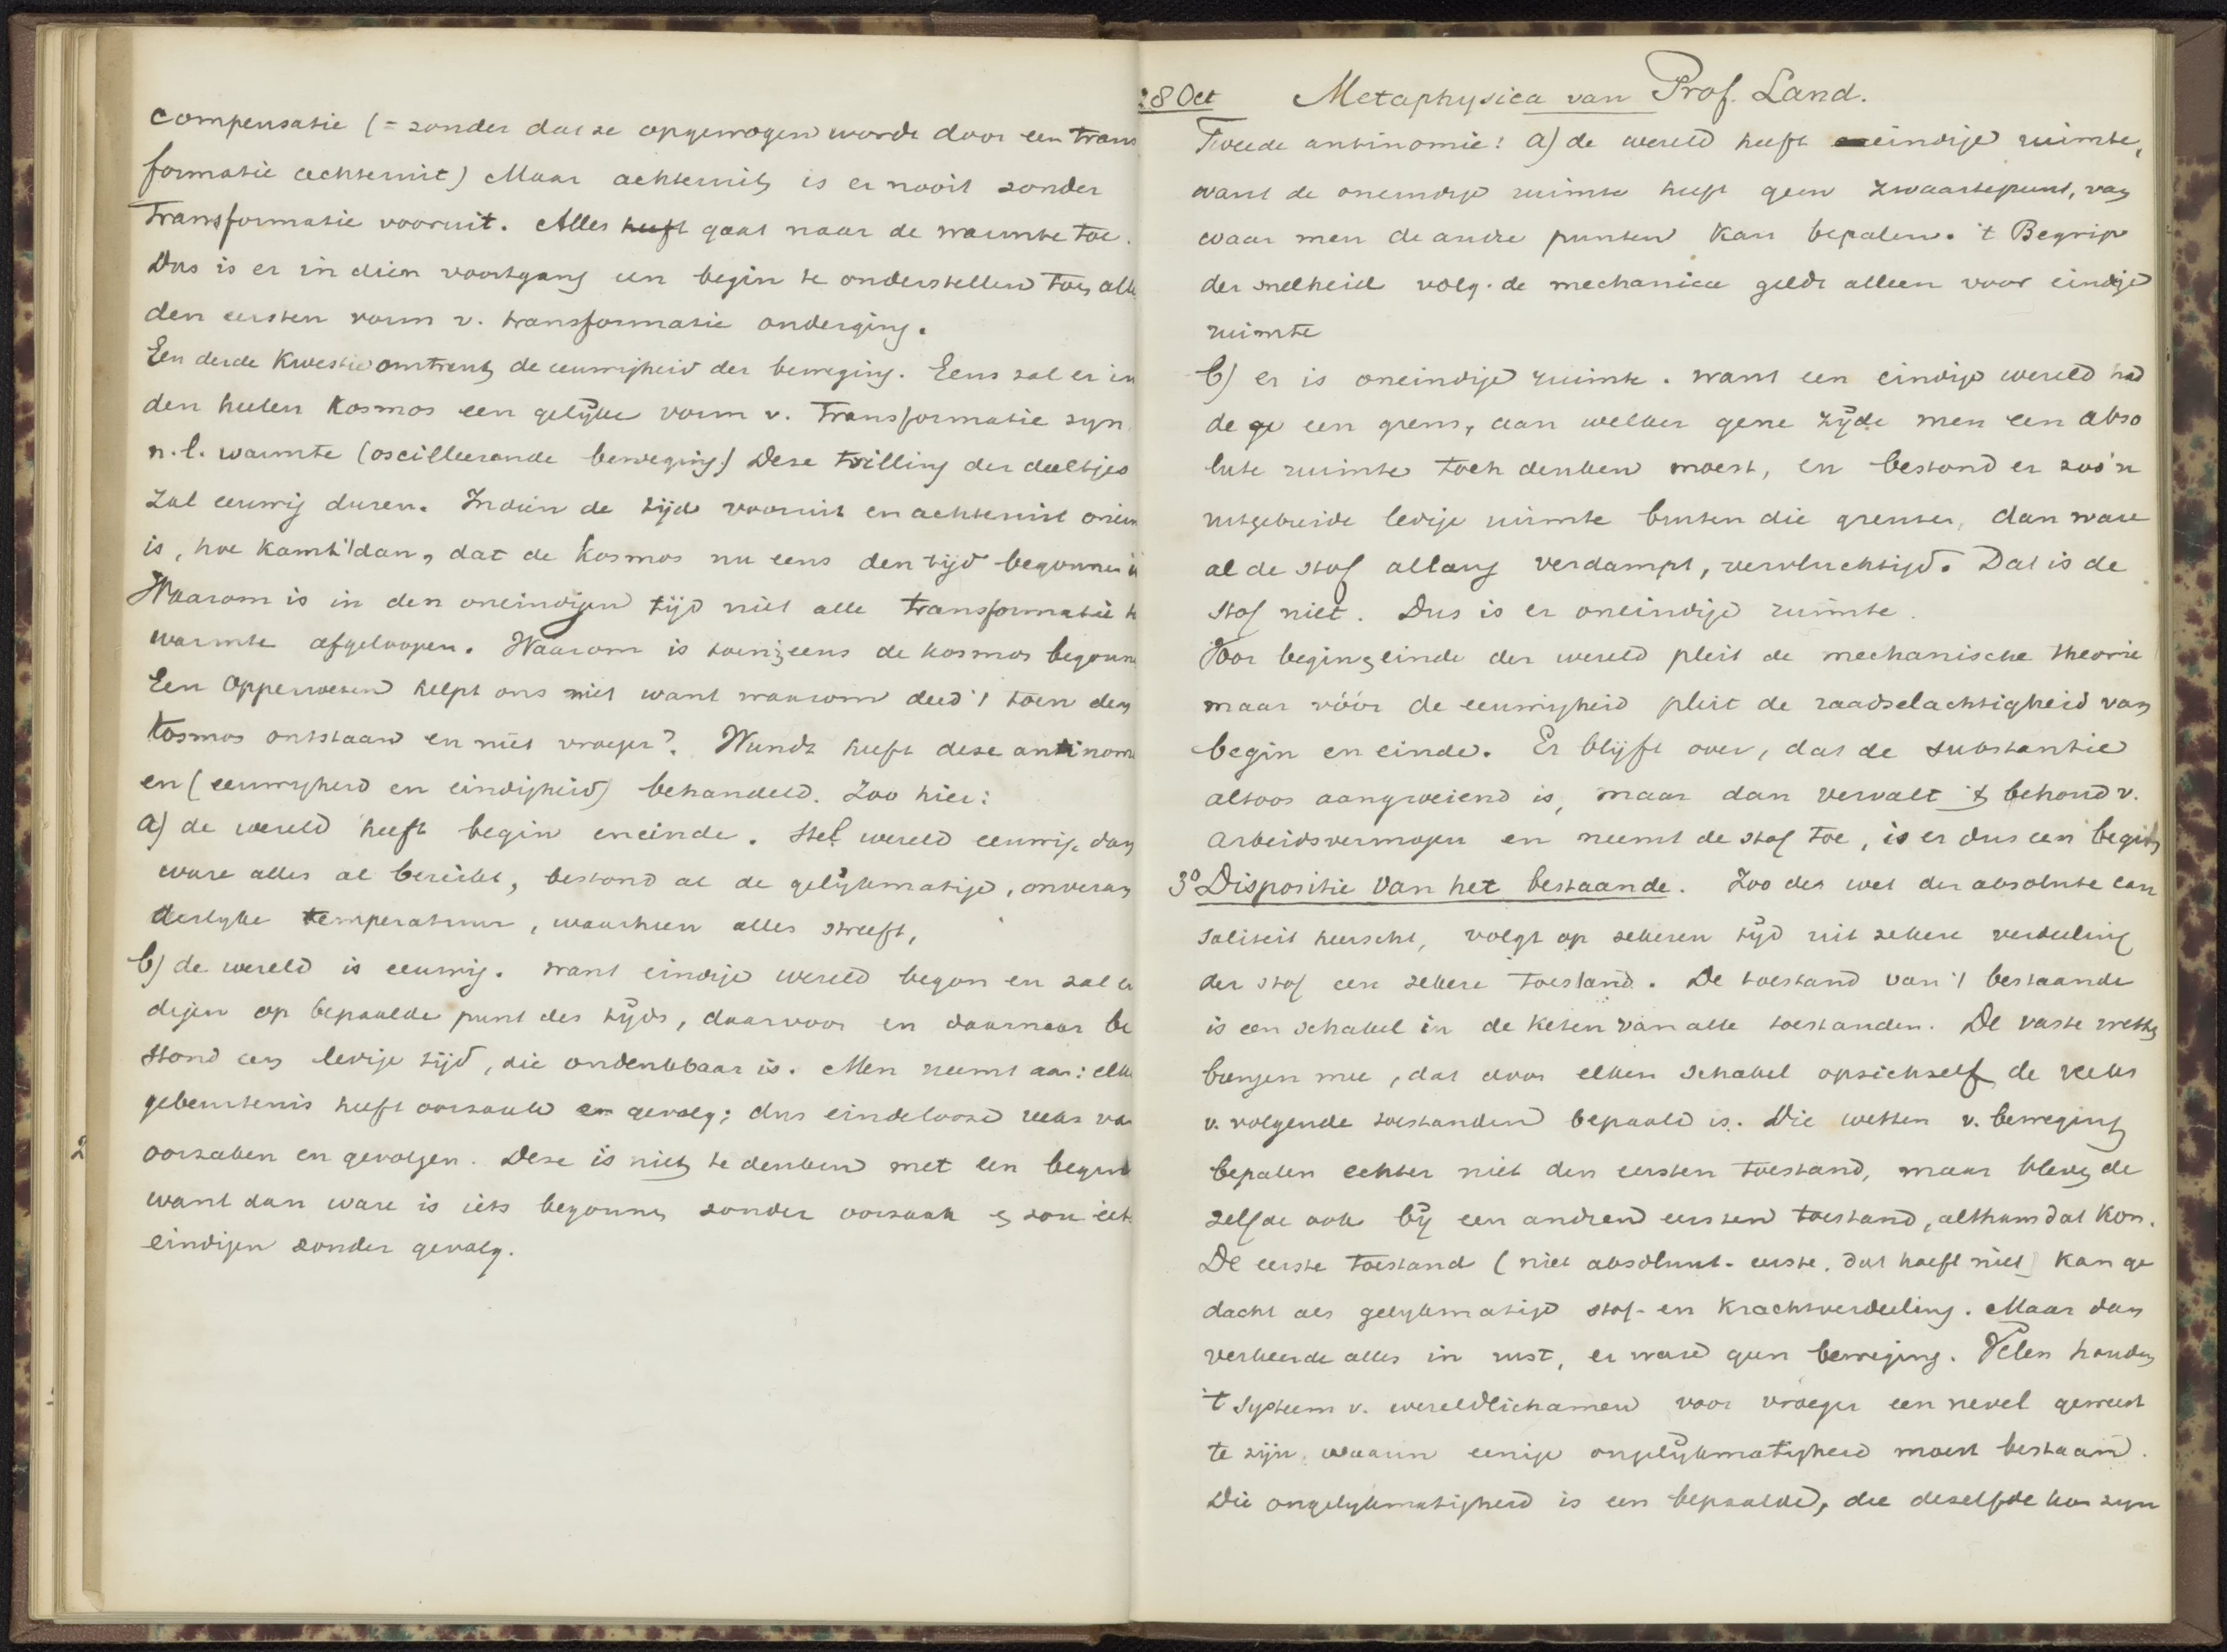 compensatie (= zonder dat ze opgewogen worde door een trans
formatie achteruit) Maar achteruit is er nooit zonder
Transformatie vooruit. Alles heeft gaat naar de warmte toe.
Dus is er in dien voortgang een begin te onderstellen toen alle
den eersten vorm v. transformatie onderging.
Een derde kwestie omtrent de eeuwigheid der beweging. Eens zal er in
den heelen Kosmos een gelijke vorm v. Transformatie zyn
n.l. warmte (oscilleerende beweging) Deze trilling der deeltjes
zal eeuwig duren. Indien de tijd vooruit en achteruit onein
is, hoe komt 't dan, dat de kosmos nu eens den tijd begonnen i
Waarom is in den oneindigen tijd niet alle transformatie t
warmte afgeloopen. Waarom is toen eens de kosmos begonn
Een Opperwezen helpt ons niet want waarom deed 't toen den
Kosmos ontstaan en niet vroeger? Wundt heeft deze antinom
en (eeuwigheid en eindigheid) behandeld. Zoo hier:
a) de wereld heeft begin en einde. Stel wereld eeuwig, dan
ware alles al bereikt, bestond al de gelijkmatige, onveran
derlyke temperatuur, waarheen alles streeft,
b) de wereld is eeuwig. want eindige wereld begon en zal ei
digen op bepaalde punt des tijds, daarvoor en daarnaar be
stond een ledige tijd, die ondenkbaar is. Men neemt aan: elke
gebeurtenis heeft oorzaak en gevolg; dus eindelooze reeks va
oorzaken en gevolgen. Deze is niet te denken met een begin
want dan ware is iets begonnen zonder oorzaak en zou iets
eindigen zonder gevolg.
28 Oct Metaphysica van Prof. Land.
Tweede antinomie: a) de wereld heeft eindige ruimte,
want de oneindige ruimte heeft geen zwaartepunt, van
waar men de andre punten kan bepalen. 't Begrip
der snelheid volg. de mechanica geldt alleen voor eindige
ruimte
b) er is oneindige ruimte. want een eindige wereld had
de ge een grens, aan welker gene zijde men een abso
lute ruimte toch denken moest, en bestond er zoo'n
uitgebreide ledige ruimte buiten die grenzen, dan ware
al de stof allang verdampt, vervluchtigd. Dat is de
stof niet. Dus is er oneindige ruimte.
Voor begin en einde der wereld pleit de mechanische theorie
maar vóór de eeuwigheid pleit de raadselachtigheid van
begin en einde. Er blijft over, dat de substantie
altoos aangroeiend is, maar dan vervalt 't behoud v.
arbeidsvermogen en neemt de stof toe, is er dus een begin
3° Dispositie van het bestaande. Zoo de wet der absolute cau
saliteit heerscht, volgt op zekeren tijd uit zekere verdeeling
der stof een zekere toestand. De toestand van 't bestaande
is een schakel in de keten van alle toestanden. De vaste wetten
brengen mee, dat door elken schakel opzichzelf de reeks
v. volgende toestanden bepaald is. Die wetten v. beweging
bepalen echter niet den eersten toestand, maar bleven de
zelfde ook bij een andren eersten toestand, althans dat kon.
De eerste toestand (niet absoluut-eerste, dat hoeft niet) kan ge
dacht als gelykmatige stof- en krachtverdeeling. Maar dan
verkeerde alles in rust, er ware geen beweging. Velen houden
't systeem v. wereldlichamen voor vroeger een nevel geweest
te zijn, waarin eenige ongelijkmatigheid moest bestaan.
Die ongelykmatigheid is een bepaalde, die dezelfde kon zyn